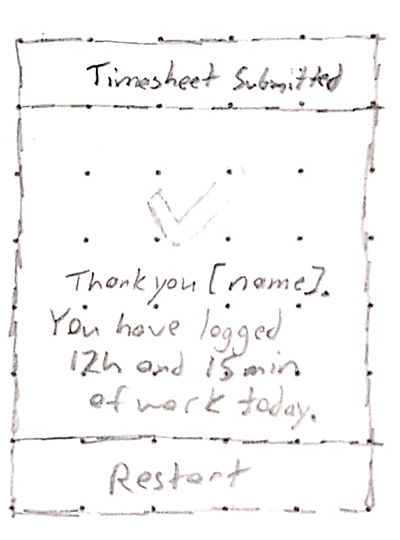 Timesheet Submitted
Thank you [name].
You have logged
12h and 15min
of work today.
Restart